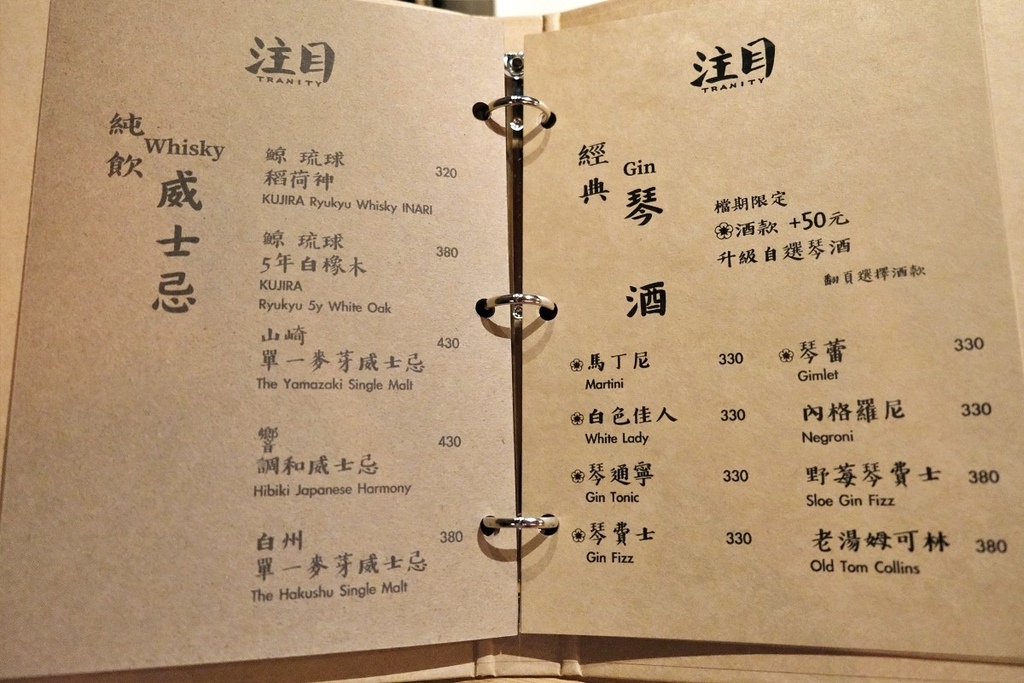 注目
TRANITY
純飲
Whisky
威士忌
鯨 琉球
稻荷神
320
KUJIRA Ryukyu Whisky INARI
鯨 琉球
5年白橡木
380
KUJIRA
Ryukyu 5y White Oak
山崎
單一麥芽威士忌
430
The Yamazaki Single Malt
響
調和威士忌
430
Hibiki Japanese Harmony
白州
單一麥芽威士忌
380
The Hakushu Single Malt
注目
TRANITY
經典
Gin
琴酒
檔期限定
酒款 +50元
升級自選琴酒
翻頁選擇酒款
馬丁尼 330
Martini
白色佳人 330
White Lady
琴通寧 330
Gin Tonic
琴費士 330
Gin Fizz
琴蕾 330
Gimlet
內格羅尼 330
Negroni
野莓琴費士 380
Sloe Gin Fizz
老湯姆可林 380
Old Tom Collins